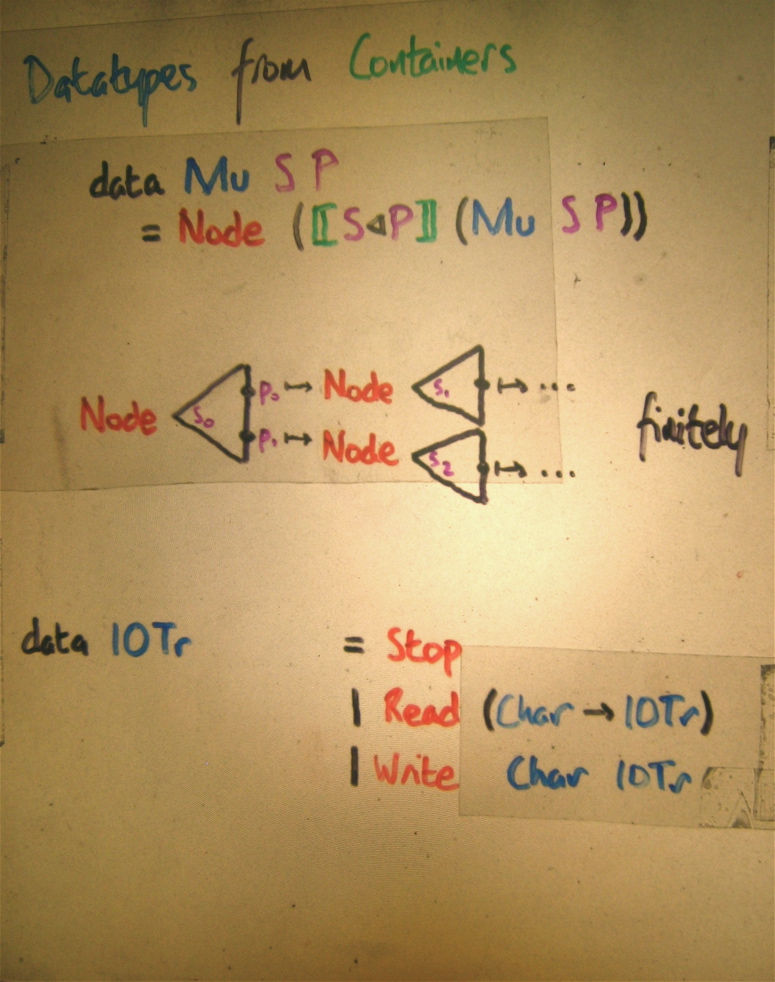 Datatypes from Containers
data Mu S P
= Node (⟦S◁P⟧ (Mu S P))
Node s₀ p₀ ↦ Node s₁ ↦ ...
p₁ ↦ Node s₂ ↦ ...
finitely
data IOTr = Stop
| Read (Char → IOTr)
| Write Char IOTr